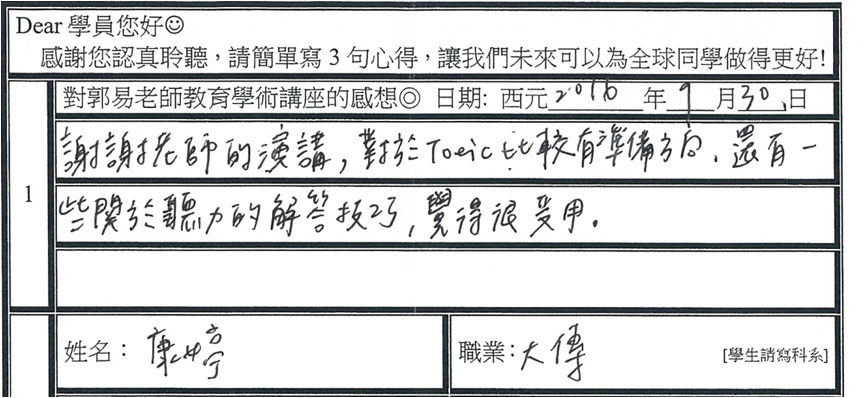 Dear 學員您好☺
感謝您認真聆聽，請簡單寫 3 句心得，讓我們未來可以為全球同學做得更好!
對郭易老師教育學術講座的感想◎ 日期: 西元 2016 年 9 月 30 日
1
謝謝老師的演講，對於Toeic比較有準備方向、還有一
些關於聽力的解答技巧，覺得很受用。
姓名： 康婷
職業：大傳 [學生請寫科系]